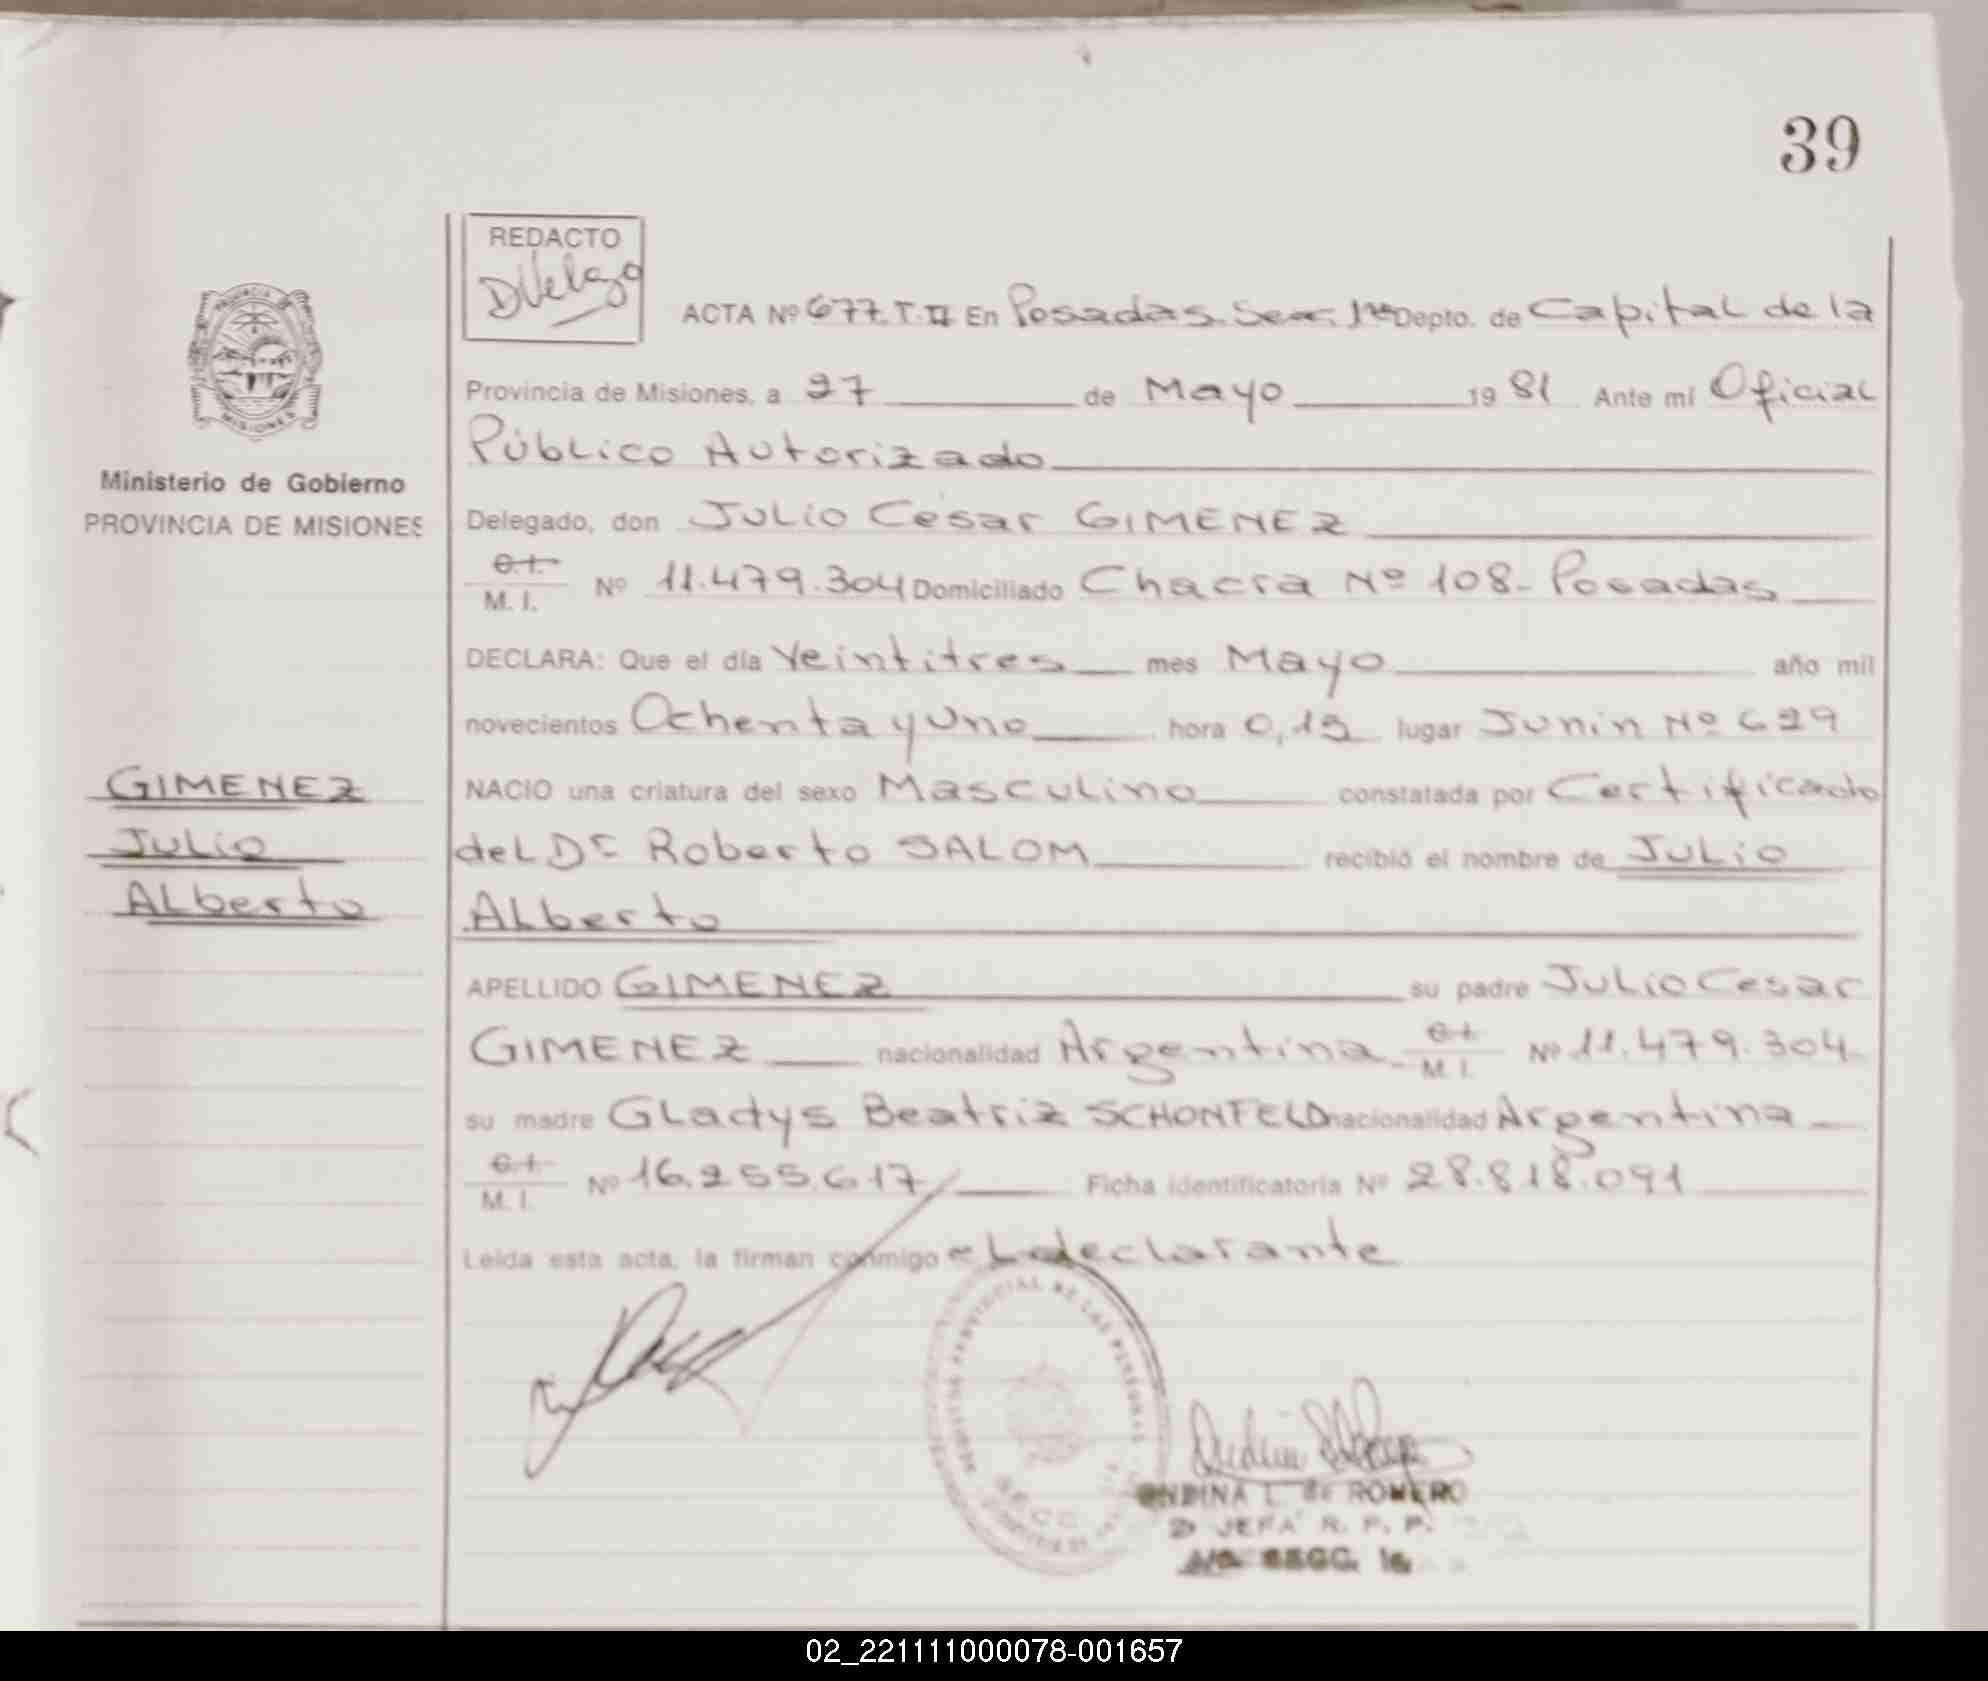 39
REDACTO
DVelazo
ACTA Nº 677. T. II En Posadas. Secc. 1ra Depto. de Capital de la
Provincia de Misiones, a 27 de Mayo 1981 Ante mí Oficial
Público Autorizado
Ministerio de Gobierno
PROVINCIA DE MISIONES
Delegado, don Julio César GIMENEZ
C.I.
M. I. Nº 11.479.304 Domiciliado Chacra Nº 108 - Posadas
DECLARA: Que el día Veintitres mes Mayo año mil
novecientos Ochenta y Uno hora 0,15 lugar Junin Nº 629
GIMENEZ
Julio
Alberto
NACIO una criatura del sexo Masculino constatada por Certificado
del Dr Roberto SALOM recibió el nombre de Julio
Alberto
APELLIDO GIMENEZ su padre Julio Cesar
GIMENEZ nacionalidad Argentina - C.I.
M. I. Nº 11.479.304
su madre Gladys Beatriz SCHONFELD nacionalidad Argentina
C.I.
M. I. Nº 16.255.617 Ficha identificatoria Nº 28.818.091
Leída esta acta, la firman conmigo el declarante
PROVINCIAL DE LAS PERSONAS
ONDINA L. de ROMERO
JEFA R. P. P.
SECC. 1a.
02_221111000078-001657